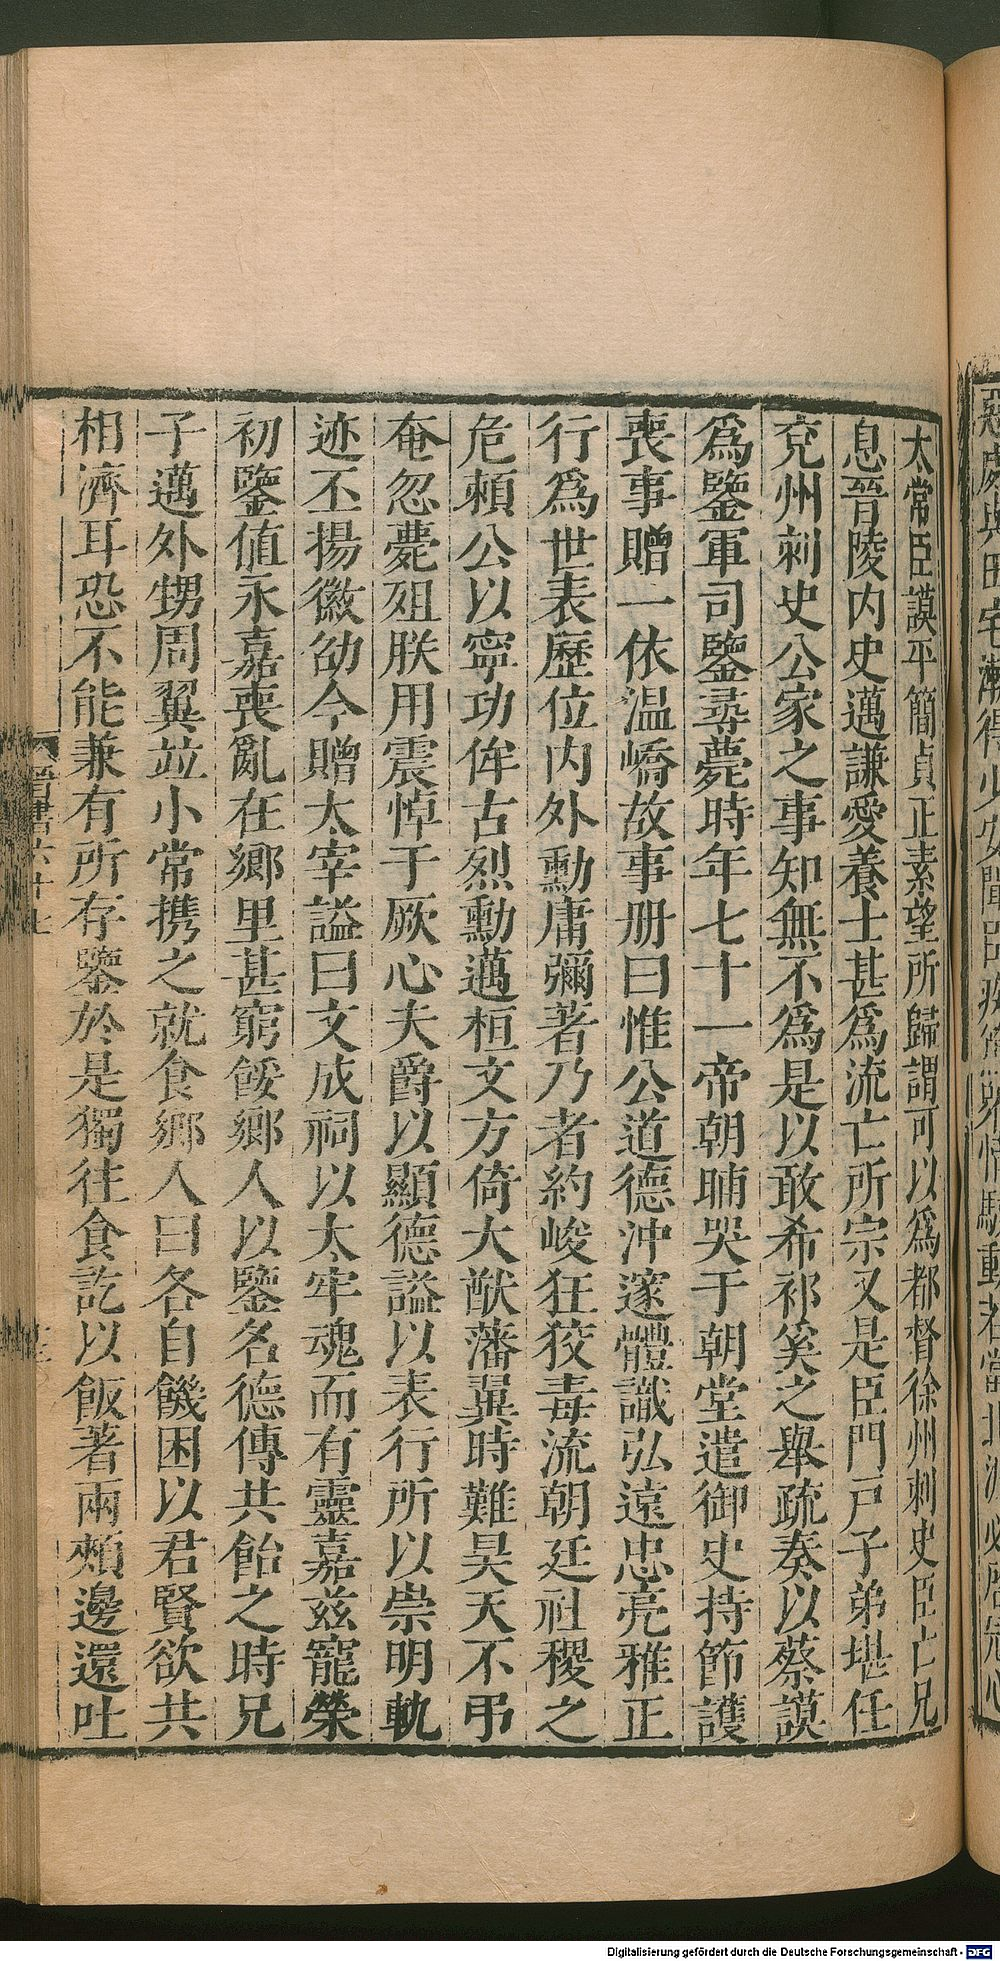 太常臣謨平簡貞正素望所歸謂可以爲都督徐州刺史臣亡兄
息晉陵内史邁謙愛養士甚爲流亡所宗又是臣門戸子弟堪任
兖州刺史公家之事知無不爲是以敢希祁奚之舉疏奏以蔡謨
爲鑒軍司鑒尋薨時年七十一帝朝晡哭于朝堂遣御史持節護
喪事贈一依温嶠故事册曰惟公道德沖邃體識弘遠忠亮雅正
行爲世表歷位内外勳庸彌著乃者約峻狂狡毒流朝廷社稷之
危賴公以寧功侔古烈勳邁桓文方倚大猷藩翼時難昊天不弔
奄忽薨殂朕用震悼于厥心夫爵以顯德謚以表行所以崇明軌
迹丕揚徽劭今贈太宰謚曰文成祠以太牢魂而有靈嘉兹寵榮
初鑒值永嘉喪亂在鄉里甚窮餒鄉人以鑒名德傳共飴之時兄
子邁外甥周翼竝小常攜之就食鄉人曰各自饑困以君賢欲共
相濟耳恐不能兼有所存鑒於是獨往食訖以飯著兩頰邊還吐
晉書六十七
Digitalisierung gefördert durch die Deutsche Forschungsgemeinschaft - DFG